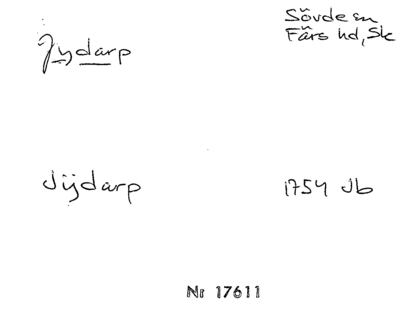 Jydarp
Sövde sn
Färs hd, Sk
Jijdarp
1754 Jb
Nr 17611